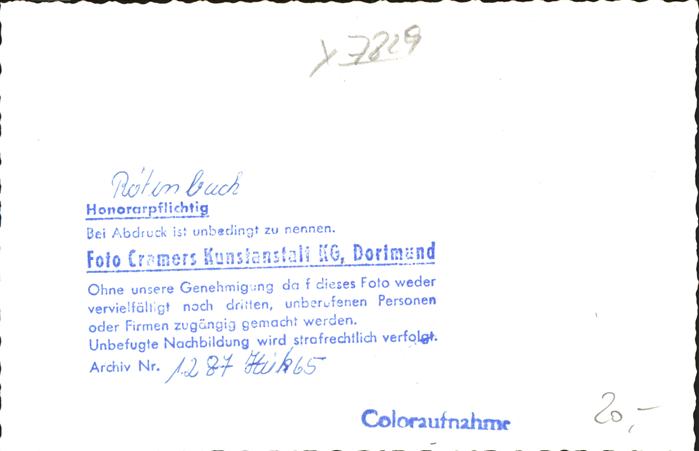 X 7829
Rötenbach
Honorarpflichtig
Bei Abdruck ist unbedingt zu nennen.
Foto Cramers Kunstanstalt KG, Dortmund
Ohne unsere Genehmigung da f dieses Foto weder
vervielfältigt noch dritten, unberufenen Personen
oder Firmen zugängig gemacht werden.
Unbefugte Nachbildung wird strafrechtlich verfolgt.
Archiv Nr. 1287 65
Coloraufnahme
20,-